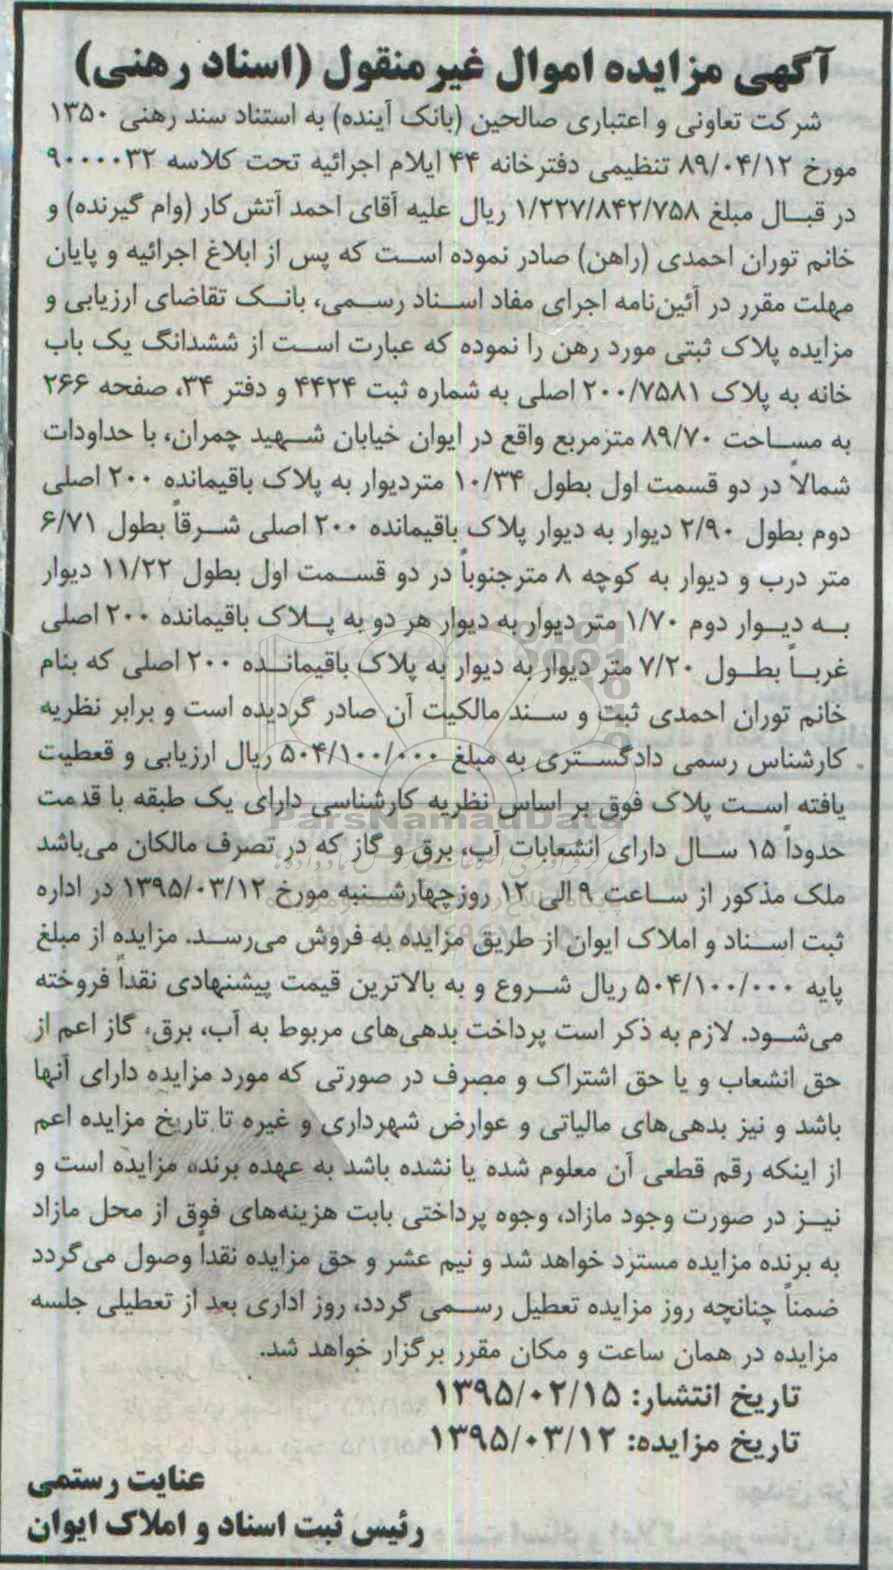 آگهی مزایده اموال غیرمنقول (اسناد رهنی)
شرکت تعاونی و اعتباری صالحین (بانک آینده) به استناد سند رهنی ۱۳۵۰
مورخ ۸۹/۰۴/۱۲ تنظیمی دفترخانه ۴۴ ایلام اجرائیه تحت کلاسه ۹۰۰۰۰۳۲
در قبال مبلغ ۱/۲۲۷/۸۴۲/۷۵۸ ریال علیه آقای احمد آتش‌کار (وام گیرنده) و
خانم توران احمدی (راهن) صادر نموده است که پس از ابلاغ اجرائیه و پایان
مهلت مقرر در آئین‌نامه اجرای مفاد اسناد رسمی، بانک تقاضای ارزیابی و
مزایده پلاک ثبتی مورد رهن را نموده که عبارت است از ششدانگ یک باب
خانه به پلاک ۲۰۰/۷۵۸۱ اصلی به شماره ثبت ۴۴۲۴ و دفتر ۳۴، صفحه ۲۶۶
به مساحت ۸۹/۷۰ مترمربع واقع در ایوان خیابان شهید چمران، با حداودات
شمالاً در دو قسمت اول بطول ۱۰/۳۴ متردیوار به پلاک باقیمانده ۲۰۰ اصلی
دوم بطول ۲/۹۰ دیوار به دیوار پلاک باقیمانده ۲۰۰ اصلی شرقاً بطول ۶/۷۱
متر درب و دیوار به کوچه ۸ مترجنوباً در دو قسمت اول بطول ۱۱/۲۲ دیوار
به دیوار دوم ۱/۷۰ متر دیوار به دیوار هر دو به پلاک باقیمانده ۲۰۰ اصلی
غرباً بطول ۷/۲۰ متر دیوار به دیوار به پلاک باقیمانده ۲۰۰ اصلی که بنام
خانم توران احمدی ثبت و سند مالکیت آن صادر گردیده است و برابر نظریه
کارشناس رسمی دادگستری به مبلغ ۵۰۴/۱۰۰/۰۰۰ ریال ارزیابی و قعطیت
یافته است پلاک فوق بر اساس نظریه کارشناسی دارای یک طبقه با قدمت
ParsNamadData
حدوداً ۱۵ سال دارای انشعابات آب، برق و گاز که در تصرف مالکان می‌باشد
ملک مذکور از ساعت ۹ الی ۱۲ روزچهارشنبه مورخ ۱۳۹۵/۰۳/۱۲ در اداره
ثبت اسناد و املاک ایوان از طریق مزایده به فروش می‌رسد. مزایده از مبلغ
پایه ۵۰۴/۱۰۰/۰۰۰ ریال شروع و به بالاترین قیمت پیشنهادی نقداً فروخته
می‌شود. لازم به ذکر است پرداخت بدهی‌های مربوط به آب، برق، گاز اعم از
حق انشعاب و یا حق اشتراک و مصرف در صورتی که مورد مزایده دارای آنها
باشد و نیز بدهی‌های مالیاتی و عوارض شهرداری و غیره تا تاریخ مزایده اعم
از اینکه رقم قطعی آن معلوم شده یا نشده باشد به عهده برنده مزایده است و
نیز در صورت وجود مازاد، وجوه پرداختی بابت هزینه‌های فوق از محل مازاد
به برنده مزایده مسترد خواهد شد و نیم عشر و حق مزایده نقداً وصول می‌گردد
ضمناً چنانچه روز مزایده تعطیل رسمی گردد، روز اداری بعد از تعطیلی جلسه
مزایده در همان ساعت و مکان مقرر برگزار خواهد شد.
تاریخ انتشار: ۱۳۹۵/۰۲/۱۵
تاریخ مزایده: ۱۳۹۵/۰۳/۱۲
عنایت رستمی
رئیس ثبت اسناد و املاک ایوان